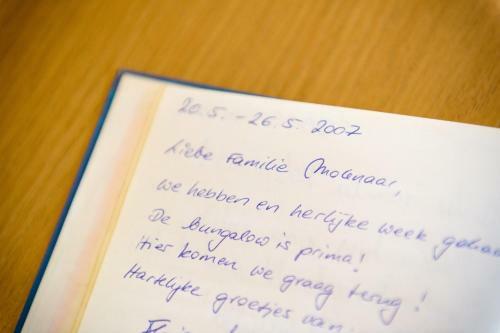 20.5. - 26.5. 2007
Liebe Familie Molenaar,
we hebben en herlijke week
De bungalow is prima!
Hier komen we graag terug!
Hartlijke groetjes van